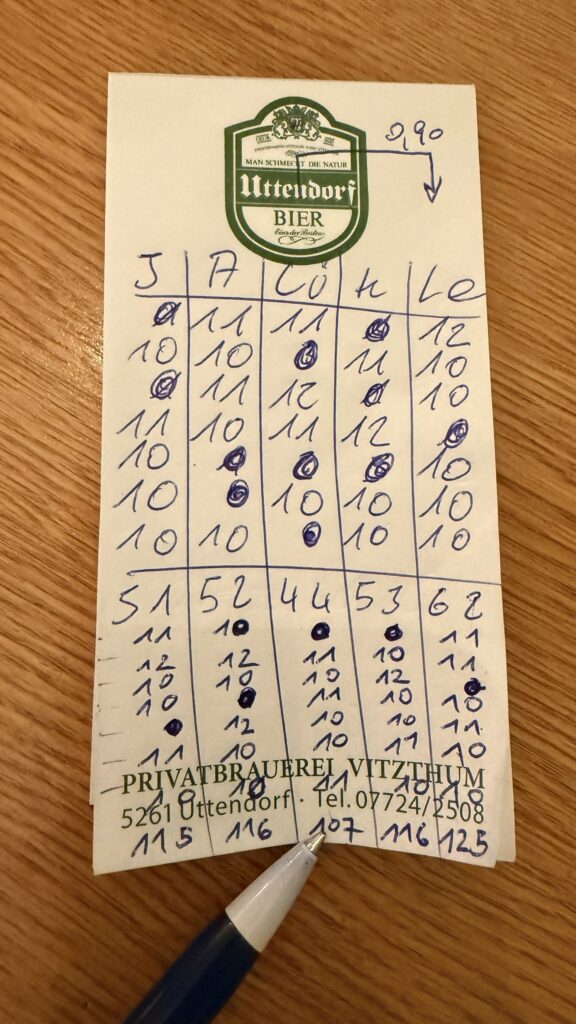 0,90
MAN SCHMECKT DIE NATUR
Uttendorf
BIER
Eins der Besten
J A Lü H Le
11 11 12
10 10 11 10
11 12 10
11 10 11 12
10 10
10 10 10 10
10 10 10 10
51 52 44 53 62
11 10 11
12 12 11 10 11
10 10 10 12
10 11 10 10
12 10 10 11
11 10 10 11 10
PRIVATBRAUEREI VITZTHUM
10 10 11 10 10
5261 Uttendorf · Tel. 07724/2508
115 116 107 116 125